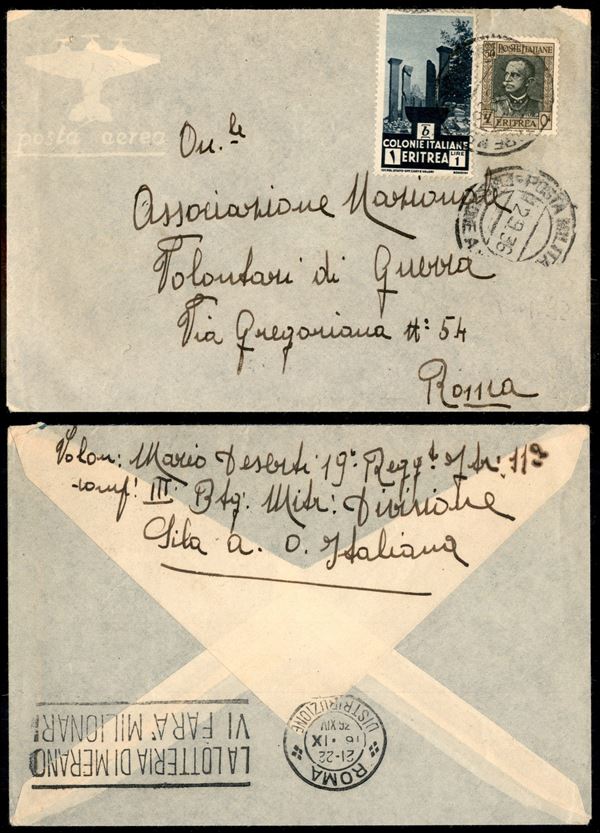 posta aerea
On.le
Associazione Nazionale
Volontari di Guerra
Via Gregoriana n: 54
Roma
6
COLONIE ITALIANE
1 ERITREA LIRE 1
POSTE ITALIANE
ERITREA
POSTA MILITA
2.9.36
Volon: Mario Deserti 19° Regg.to
III. Btg. Mitr: Divisione
Sila A. O. Italiana
LA LOTTERIA DI MERANO
VI FARA' MILIONARI
ROMA
DISTRIBUZIONE
21-22
16 · IX
36 XIV